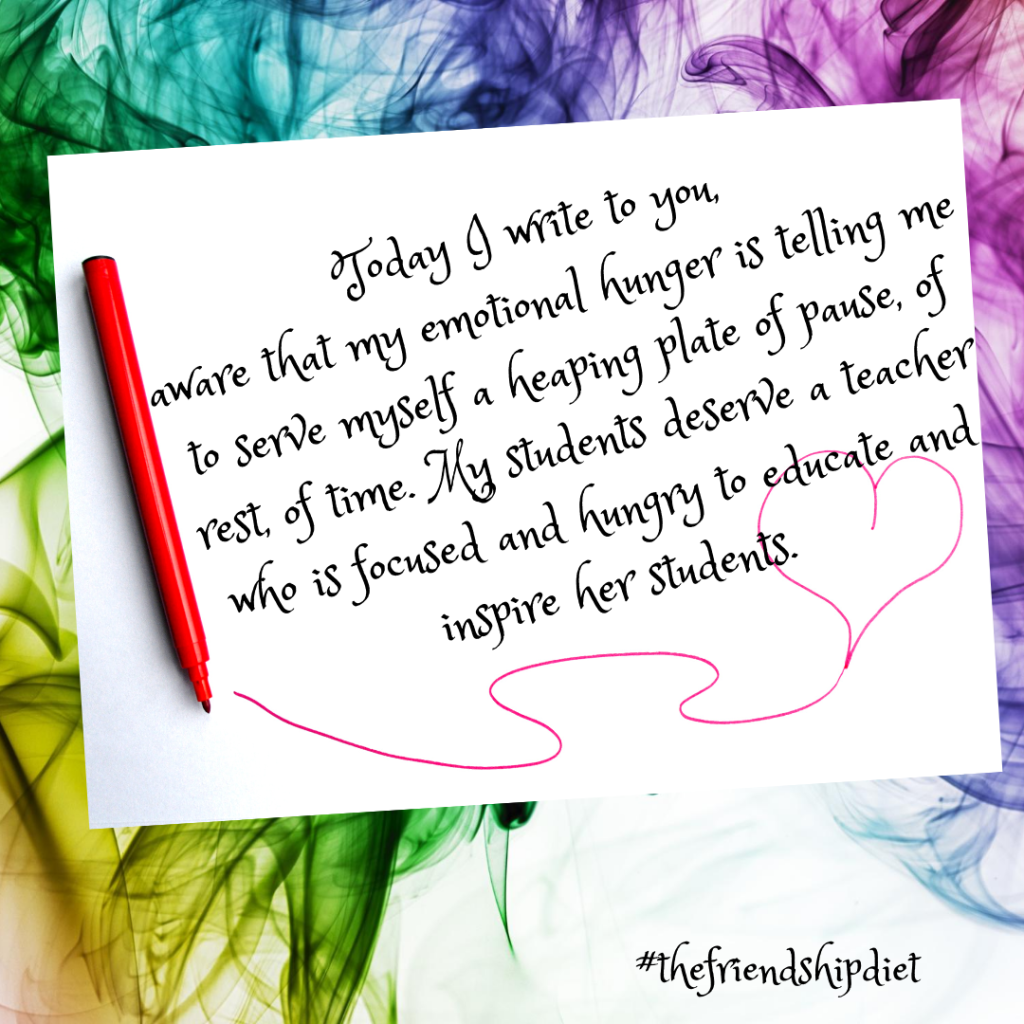 Today I write to you,
aware that my emotional hunger is telling me
to serve myself a heaping plate of pause, of
rest, of time. My students deserve a teacher
who is focused and hungry to educate and
inspire her students.
#thefriendshipdiet